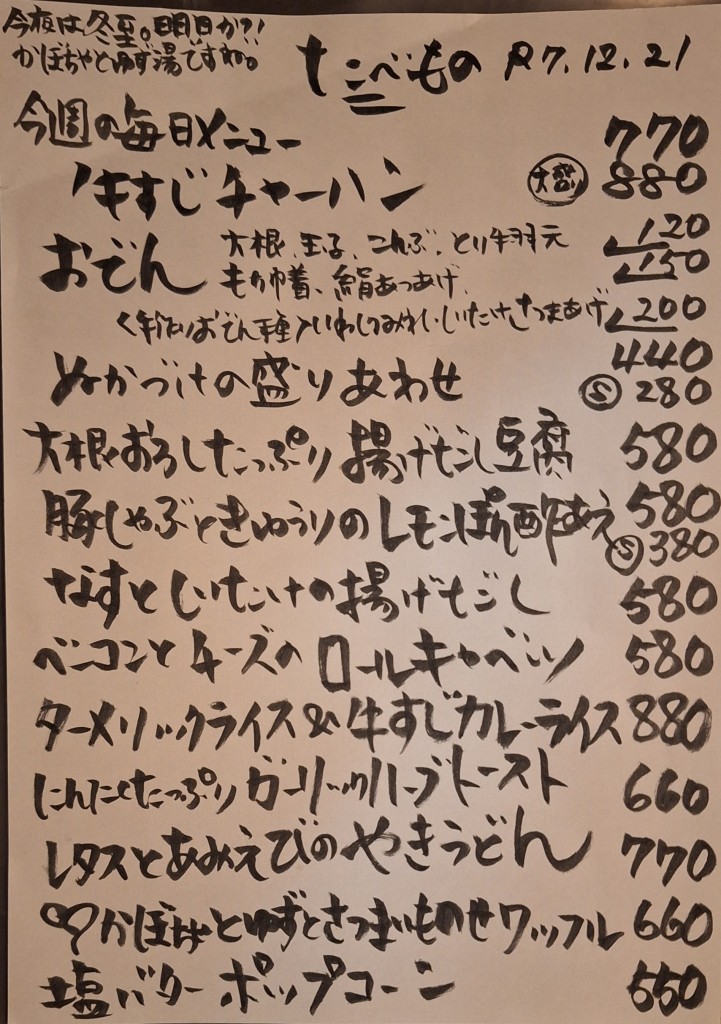 今夜は冬至。明日か?!
かぼちゃとゆず湯ですね。
たべもの R7.12.21
今週の毎日メニュー
牛すじチャーハン 770
大盛 880
おでん 大根、玉子、こんぶ、とり手羽元 120
もち巾着、絹あつあげ、 150
いわしつみれ、しいたけ、さつまあげ 200
ぬかづけの盛りあわせ 440
S 280
大根おろしたっぷり揚げだし豆腐 580
豚しゃぶときゅうりのレモンぽん酢あえ 580
S 380
なすとしいたけの揚げだし 580
ベーコンとチーズのロールキャベツ 580
ターメリックライス&牛すじカレーライス 880
にんにくたっぷりガーリックハーブトースト 660
レタスとあみえびのやきうどん 770
♡かぼちゃとゆずとさつまいものせワッフル 660
塩バターポップコーン 550